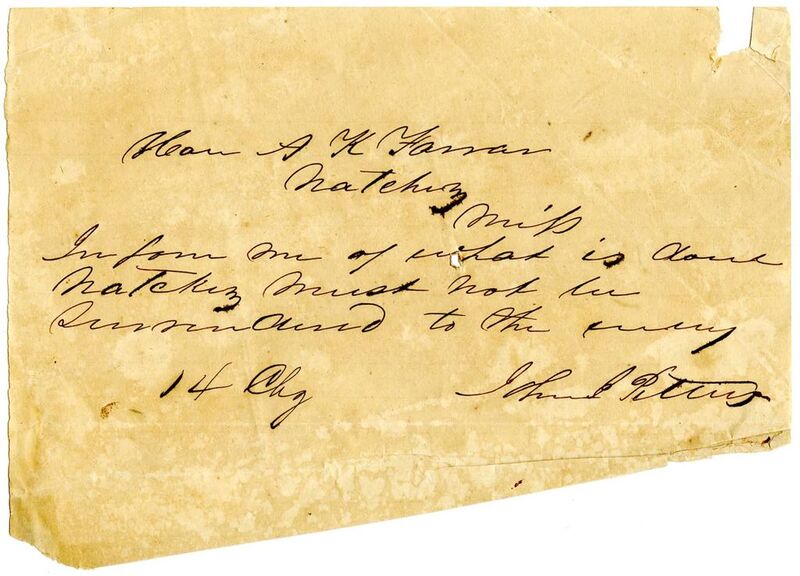 Hon A K Farrar
Natchez
Miss
Inform me of what is done
Natchez must not be
surrendered to the enemy
14 Chg
John J Pettus